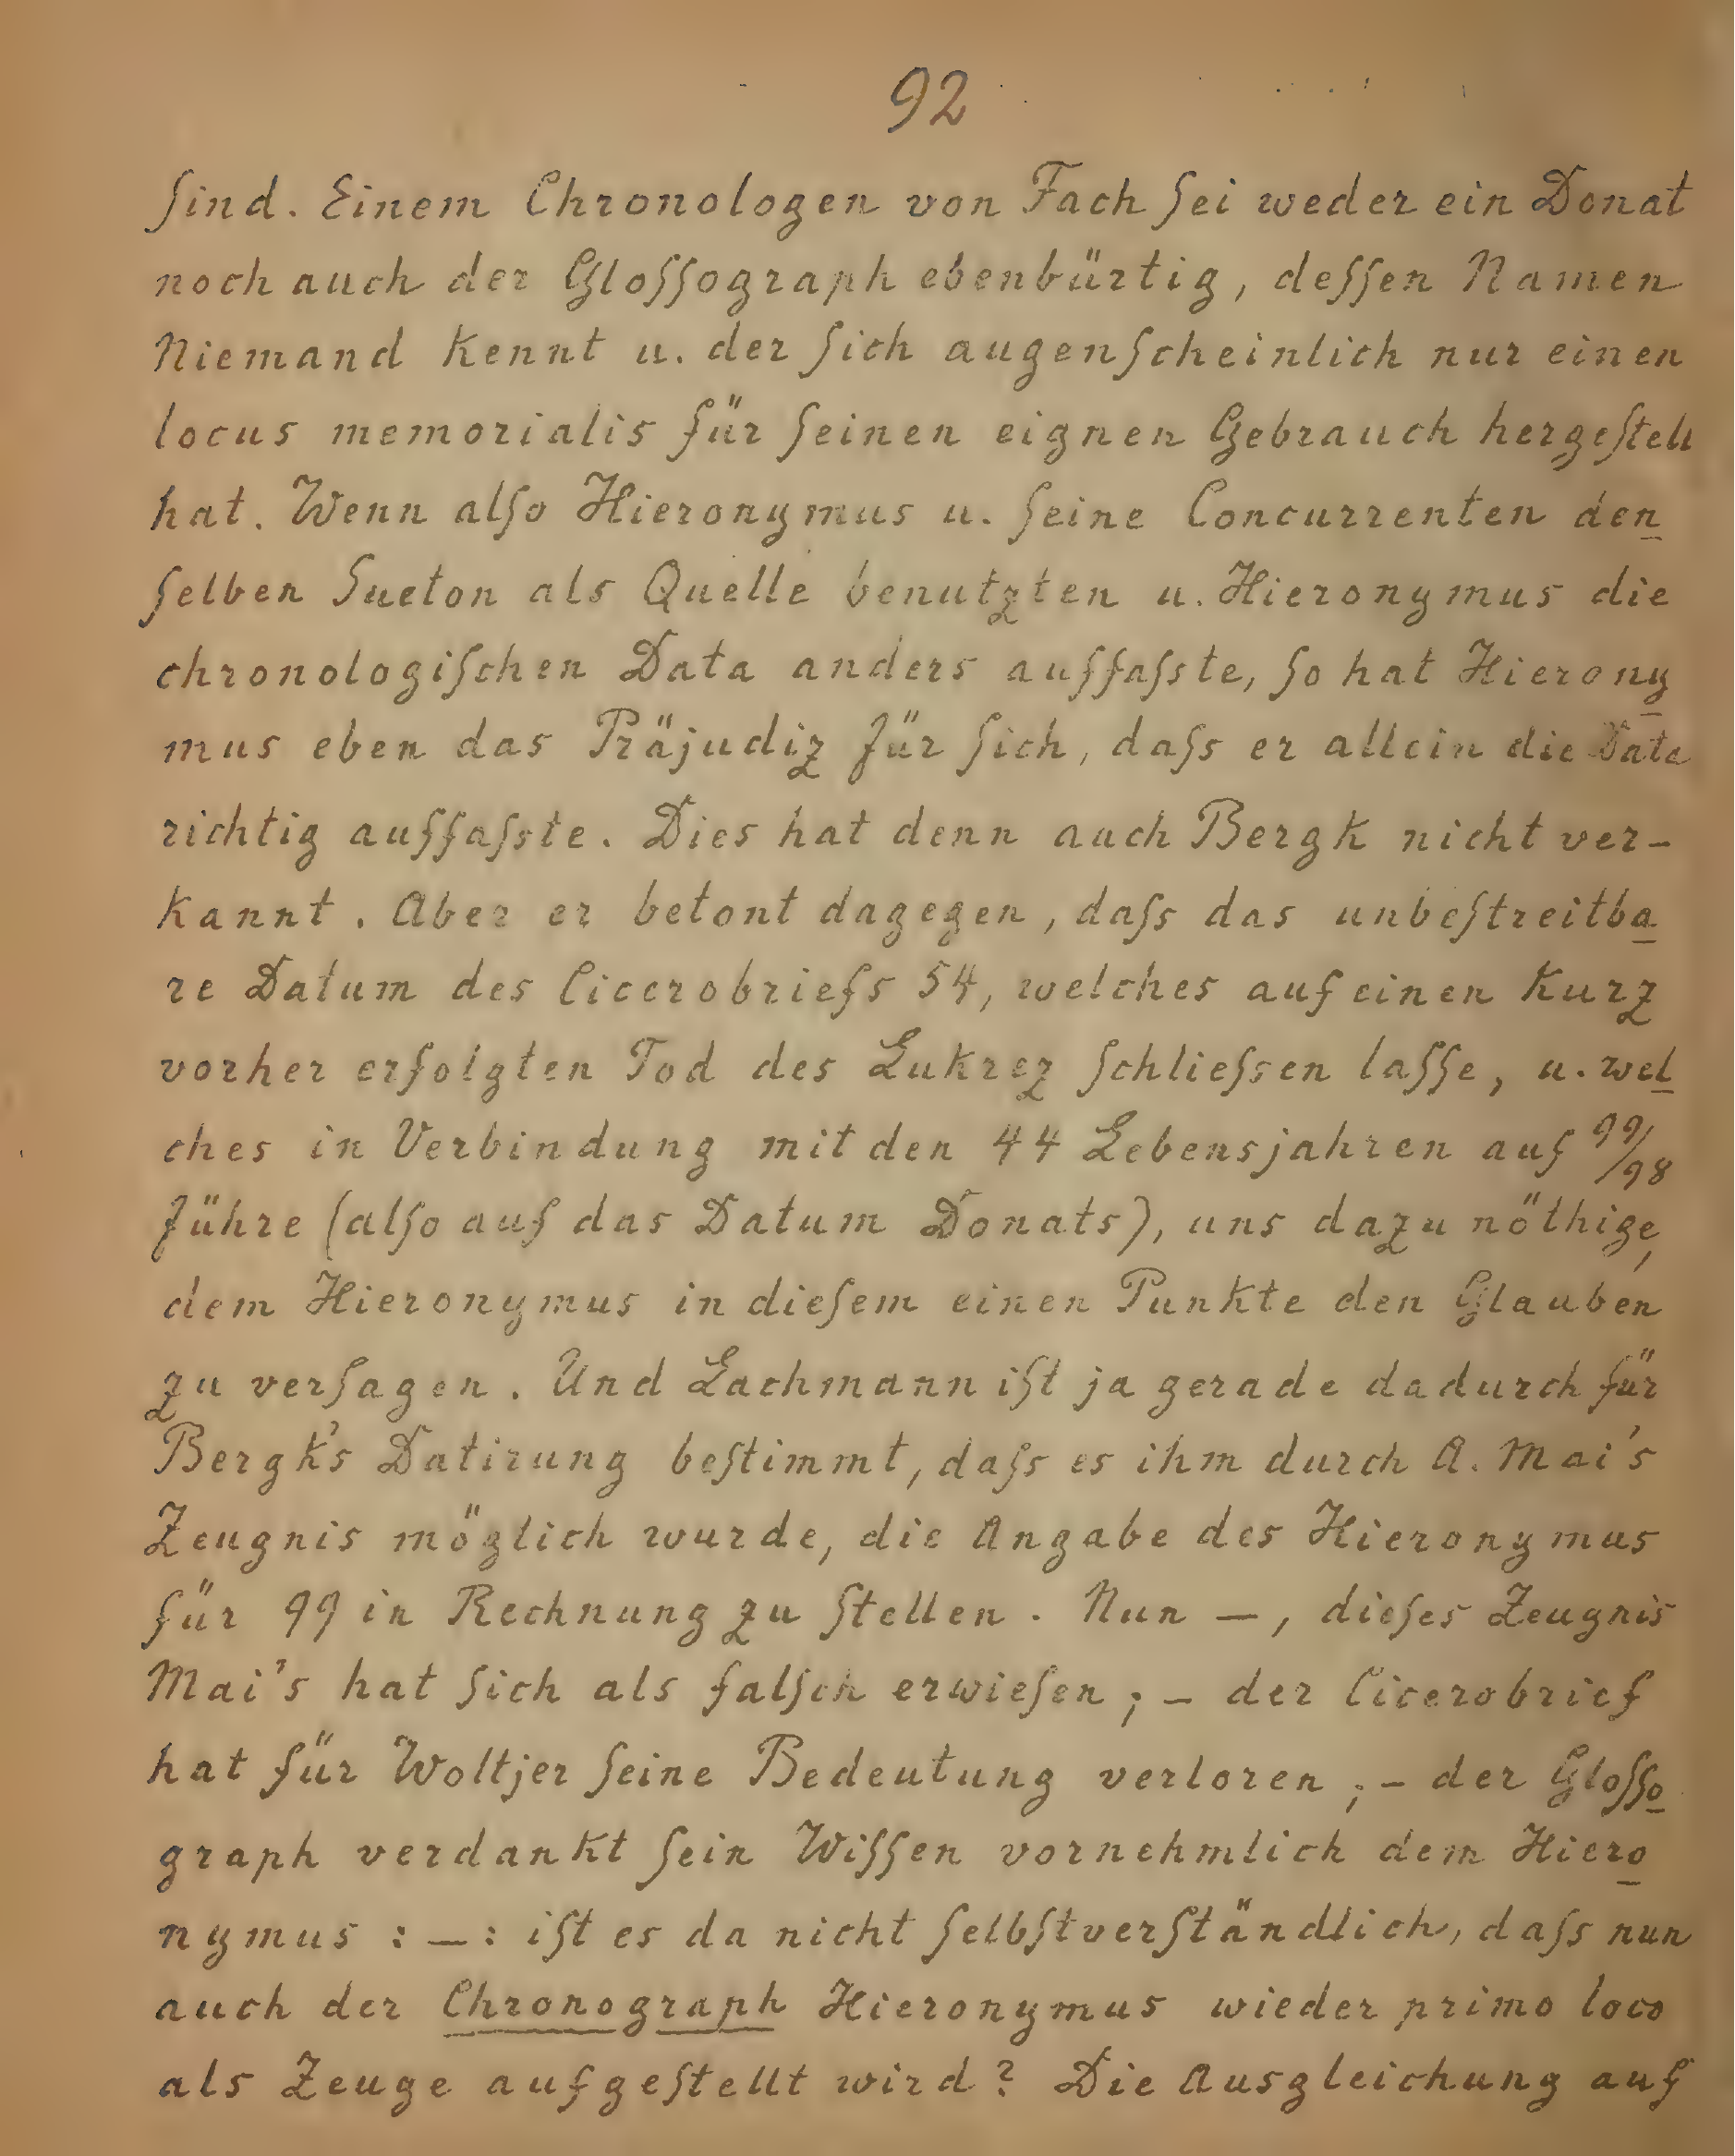 92
ſind. Einem Chronologen von Fach ſei weder ein Donat
noch auch der Gloſſograph ebenbürtig, deſſen Namen
Niemand kennt u. der ſich augenſcheinlich nur einen
locus memorialis für ſeinen eignen Gebrauch hergeſtell
hat. Wenn alſo Hieronymus u. ſeine Concurrenten den
ſelben Sueton als Quelle benutzten u. Hieronymus die
chronologiſchen Data anders auffaſste, ſo hat Hierony
mus eben das Präjudiz für ſich, daſs er allein die Data
richtig auffaſste. Dies hat denn auch Bergk nicht ver-
kannt. Aber er betont dagegen, daſs das unbeſtreitba
re Datum des Cicerobriefs 54, welches auf einen kurz
vorher erfolgten Tod des Lukrez ſchlieſsen laſſe, u. wel
ches in Verbindung mit den 44 Lebensjahren auf 99/98
führe (alſo auf das Datum Donats), uns dazu nöthige,
dem Hieronymus in dieſem einen Punkte den Glauben
zu verſagen. Und Lachmann iſt ja gerade dadurch für
Bergk's Datirung beſtimmt, daſs es ihm durch A. Mai's
Zeugnis möglich wurde, die Angabe des Hieronymus
für 99 in Rechnung zu ſtellen. Nun —, dieſes Zeugnis
Mai's hat ſich als falſch erwieſen; — der Cicerobrief
hat für Woltjer ſeine Bedeutung verloren; — der Gloſſo
graph verdankt ſein Wiſſen vornehmlich dem Hiero
nymus : — : iſt es da nicht ſelbſtverſtändlich, daſs nun
auch der Chronograph Hieronymus wieder primo loco
als Zeuge aufgeſtellt wird? Die Ausgleichung auf